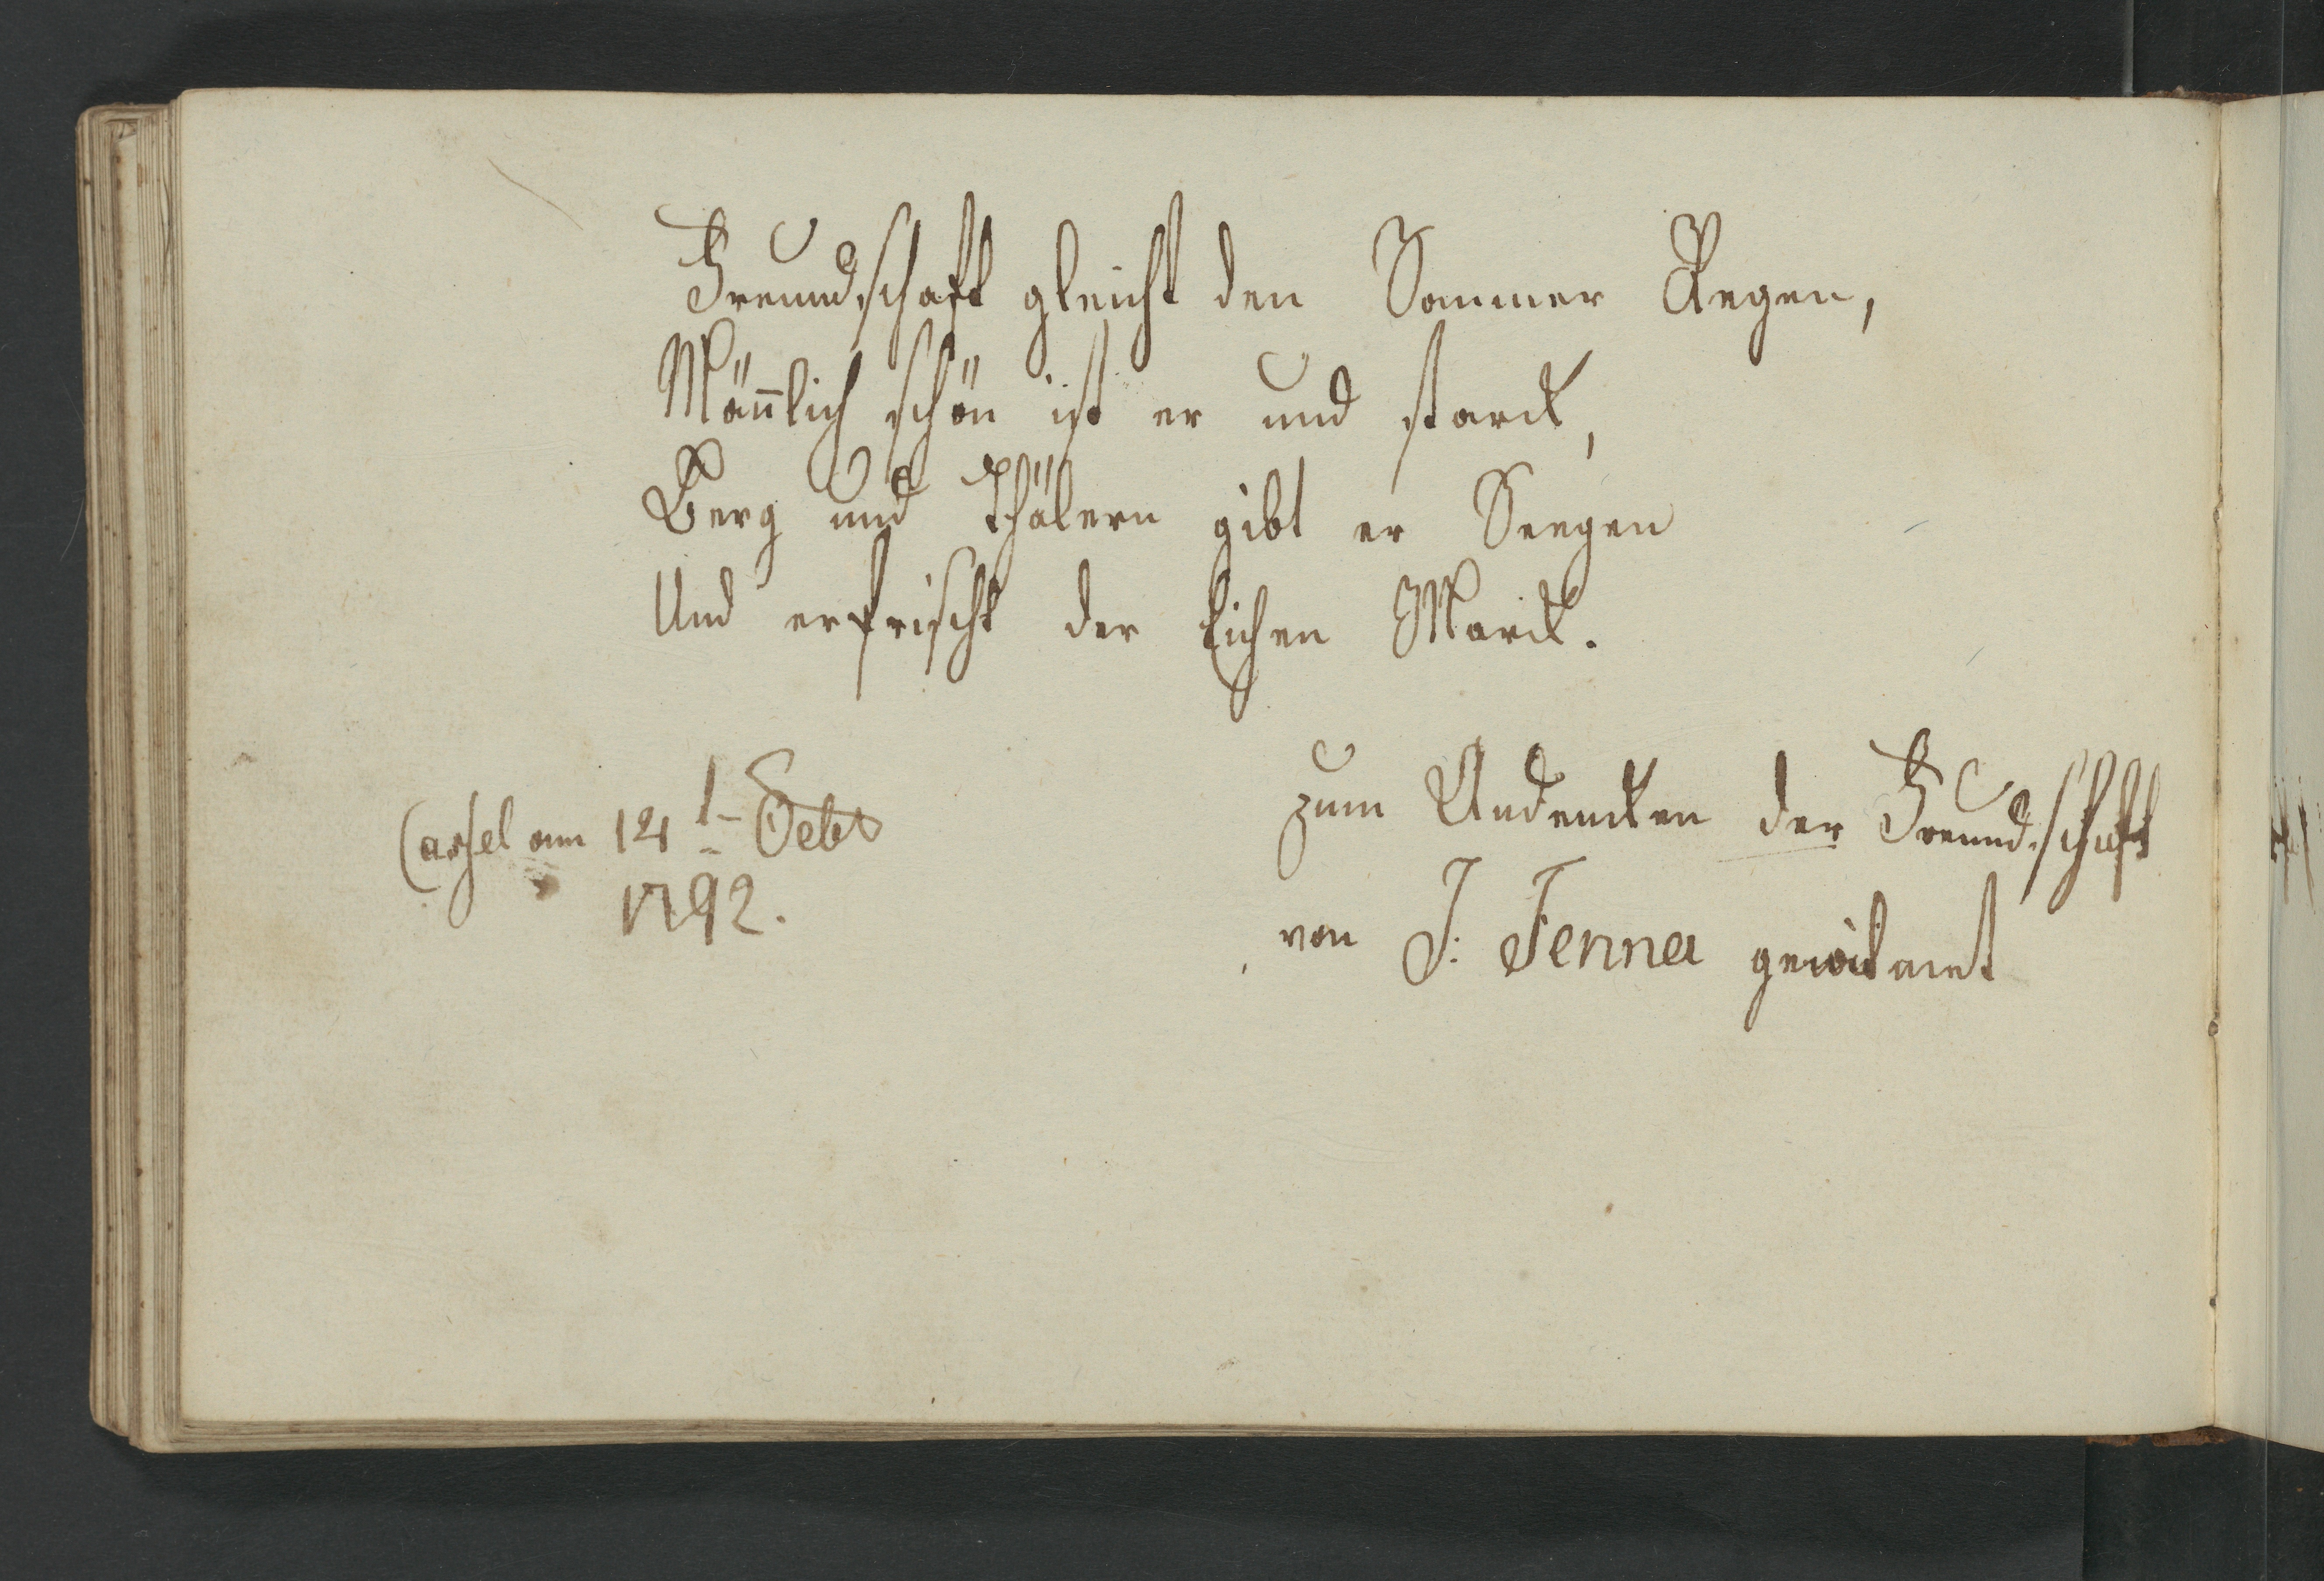 Freundschaft gleicht den Sommer Regen,
Mäñlich schön ist er und starck,
Berg und Thälern gibt er Seegen
Und erfrischt der Eichen Marck.
Cassel am 14 t Octbr
1792.
zum Andencken der Freundschaft
von J: Jenna gewidmet